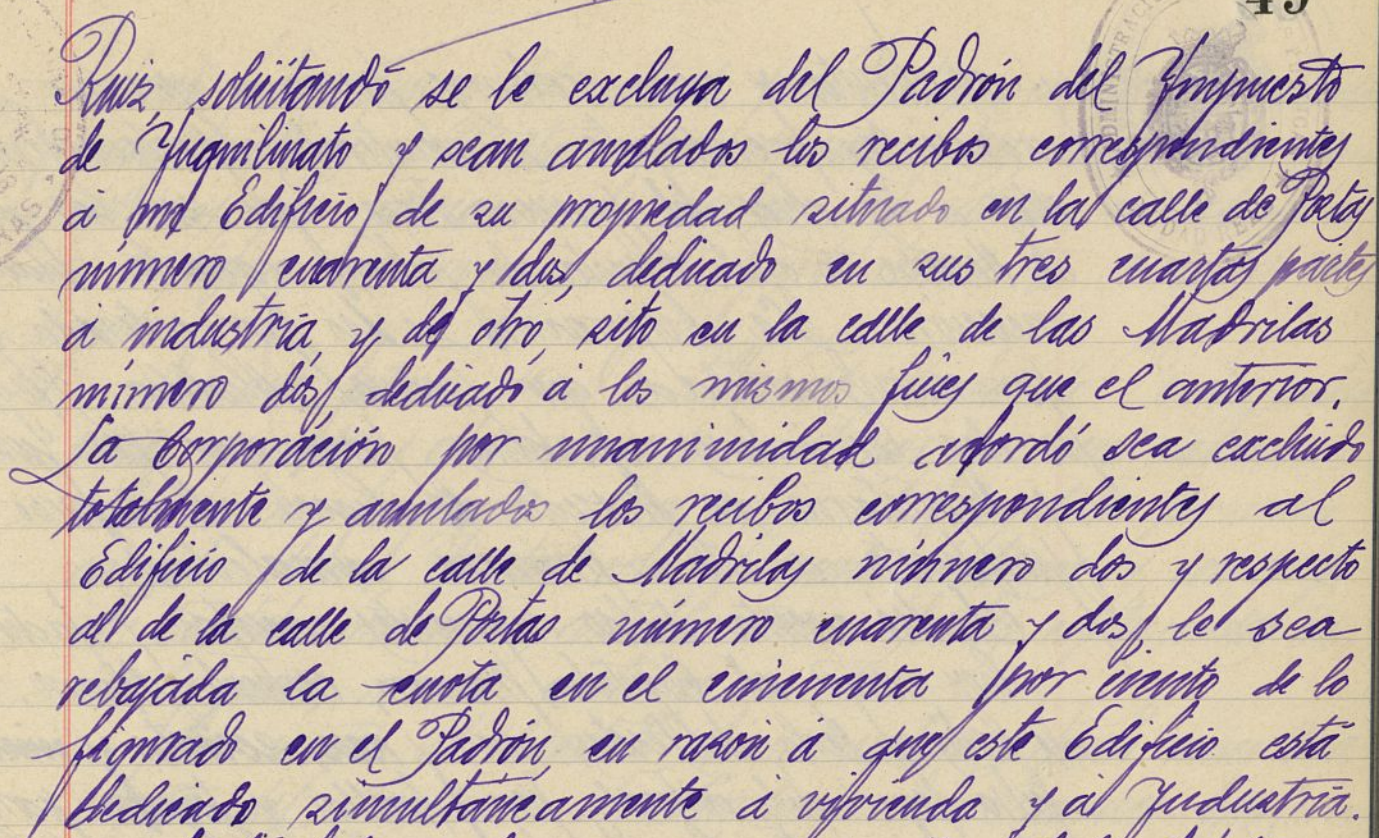 49
Ruiz, solicitando se le excluya del Padrón del Ympuesto
de Ynquilinato y sean anulados los recibos correspondientes
á un Edificio de su propiedad situado en la calle de Postas
número cuarenta y dos, dedicado en sus tres cuartas partes
á industria, y de otro, sito en la calle de las Madrilas
número dos, dedicado á los mismos fines que el anterior.
La Corporación por unanimidad acordó sea excluido
totalmente y anulados los recibos correspondientes al
Edificio de la calle de Madrilas número dos y respecto
al de la calle de Postas número cuarenta y dos, le sea
rebajada la cuota en el cincuenta por ciento de lo
figurado en el Padrón, en razón á que este Edificio está
dedicado simultáneamente á vivienda y á Yndustria.